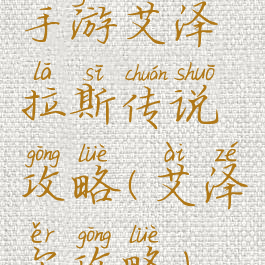 手游艾泽
lā sī chuán shuō
拉斯传说
gōng lüè ài zé
攻略(艾泽
ěr gōng lüè
尔攻略)